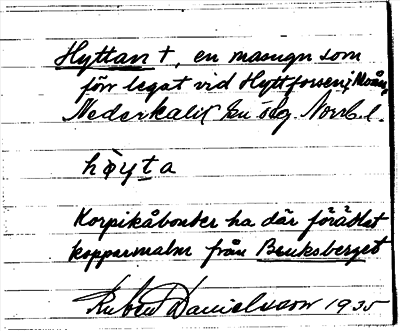 Hyttan †, en masugn som
förr legat vid Hyttforsen i Moån,
Nederkalix Norrb. l.
höyta
Korpikåbönder ha där förädlat
kopparmalm från Bruksberget
Ruben Danielsson 1935